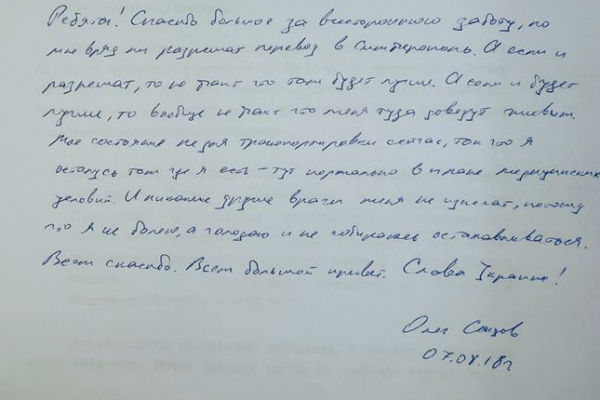 Ребята! Спасибо большое за всестороннюю заботу, но
мне вряд ли разрешат перевод в Симферополь. А если и
разрешат, то не факт что там будет лучше. А если и будет
лучше, то вообще не факт что меня туда довезут живым.
Мое состояние не для транспортировки сейчас, так что я
останусь там где я есть – тут нормально в плане медицинских
условий. И никакие другие врачи меня не излечат, потому
что я не болею, а голодаю и не собираюсь останавливаться.
Всем спасибо. Всем большой привет. Слава Украине!
Олег Сенцов
07.08.18г